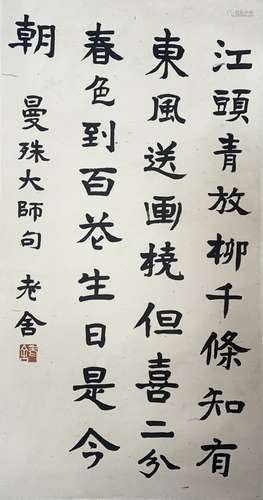 江頭青放柳千條知有
東風送画橈但喜二分
春色到百花生日是今
朝
曼殊大師句 老舍